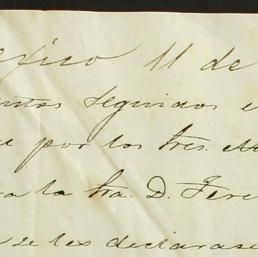 éxico 11 de
seguidos e
por los tres
la Sra. D. Tere
se les declarase